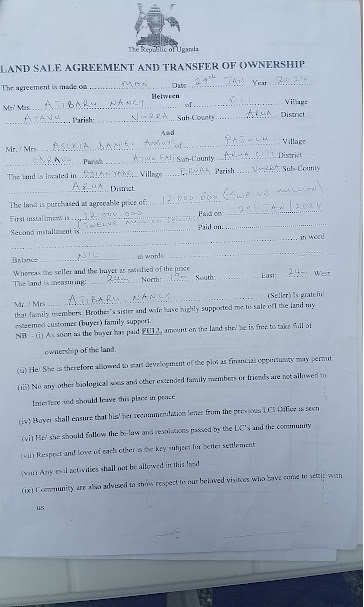 The Republic of Uganda
LAND SALE AGREEMENT AND TRANSFER OF OWNERSHIP
The agreement is made on MON Date 29th JAN Year 2024
Between
Mr/ Mrs ATIBARU NANCY of Village
AYAVU Parish: VURRA Sub-County ARUA District
And
Mr. / Mrs of Village
Parish Sub-County ARUA District
The land is located in Village ERUBA Parish VURRA Sub-County
ARUA District
The land is purchased at agreeable price of: 12,000,000 (TWELVE MILLION)
First installment is 12,000,000 Paid on 29/JAN/2024
Second installment is TWELVE MILLION Paid on:
in word
Balance NIL in words
Whereas the seller and the buyer as satisfied of the price
The land is measuring: North: South East: 24 West
Mr. / Mrs ATIBARU NANCY (Seller) Is grateful
that family members. Brother's sister and wife have highly supported me to sale off the land my
esteemed customer (buyer) family support.
NB – (i) As soon as the buyer has paid FULL, amount on the land she/ he is free to take full of
ownership of the land.
(ii) He/ She is therefore allowed to start development of the plot as financial opportunity may permit
(iii) No any other biological sons and other extended family members or friends are not allowed to
Interfere and should leave this place in peace
(iv) Buyer shall ensure that his/ her recommendation letter from the previous LCI Office is seen
(vi) He/ she should follow the bi-law and resolutions passed by the LC's and the community
(vii) Respect and love of each other is the key subject for better settlement
(viii) Any evil activities shall not be allowed in this land
(ix) Community are also advised to show respect to our beloved visitors who have come to settle with
us